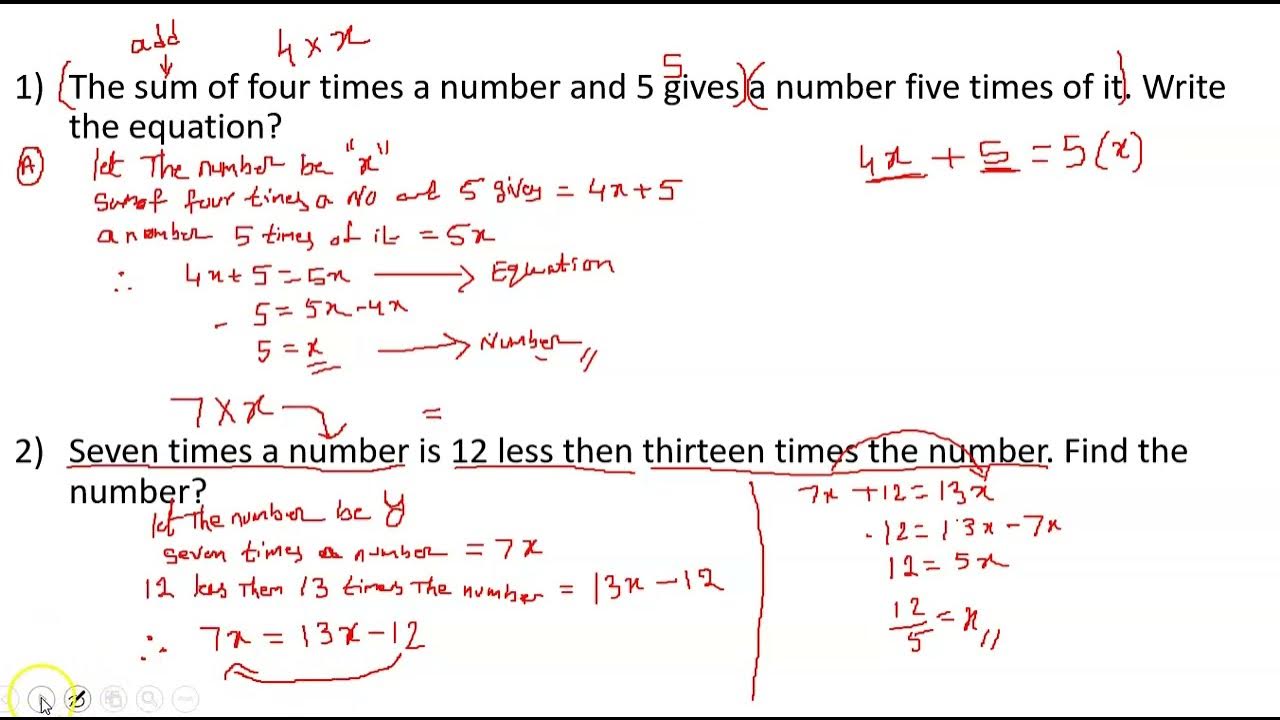 add
4 × x
5
1) (The sum of four times a number and 5 gives)(a number five times of it). Write
the equation?
A let The number be "x"
4x + 5 = 5(x)
Sum of four times a No and 5 gives = 4x + 5
a number 5 times of it = 5x
∴ 4x + 5 = 5x → Equation
- 5 = 5x - 4x
5 = x → Number //
7 × x =
2) Seven times a number is 12 less then thirteen times the number. Find the
number?
let The number be y
seven times a number = 7x
12 less them 13 times The number = 13x - 12
∴ 7x = 13x - 12
7x + 12 = 13x
. 12 = 13x - 7x
12 = 5x
12/5 = x //